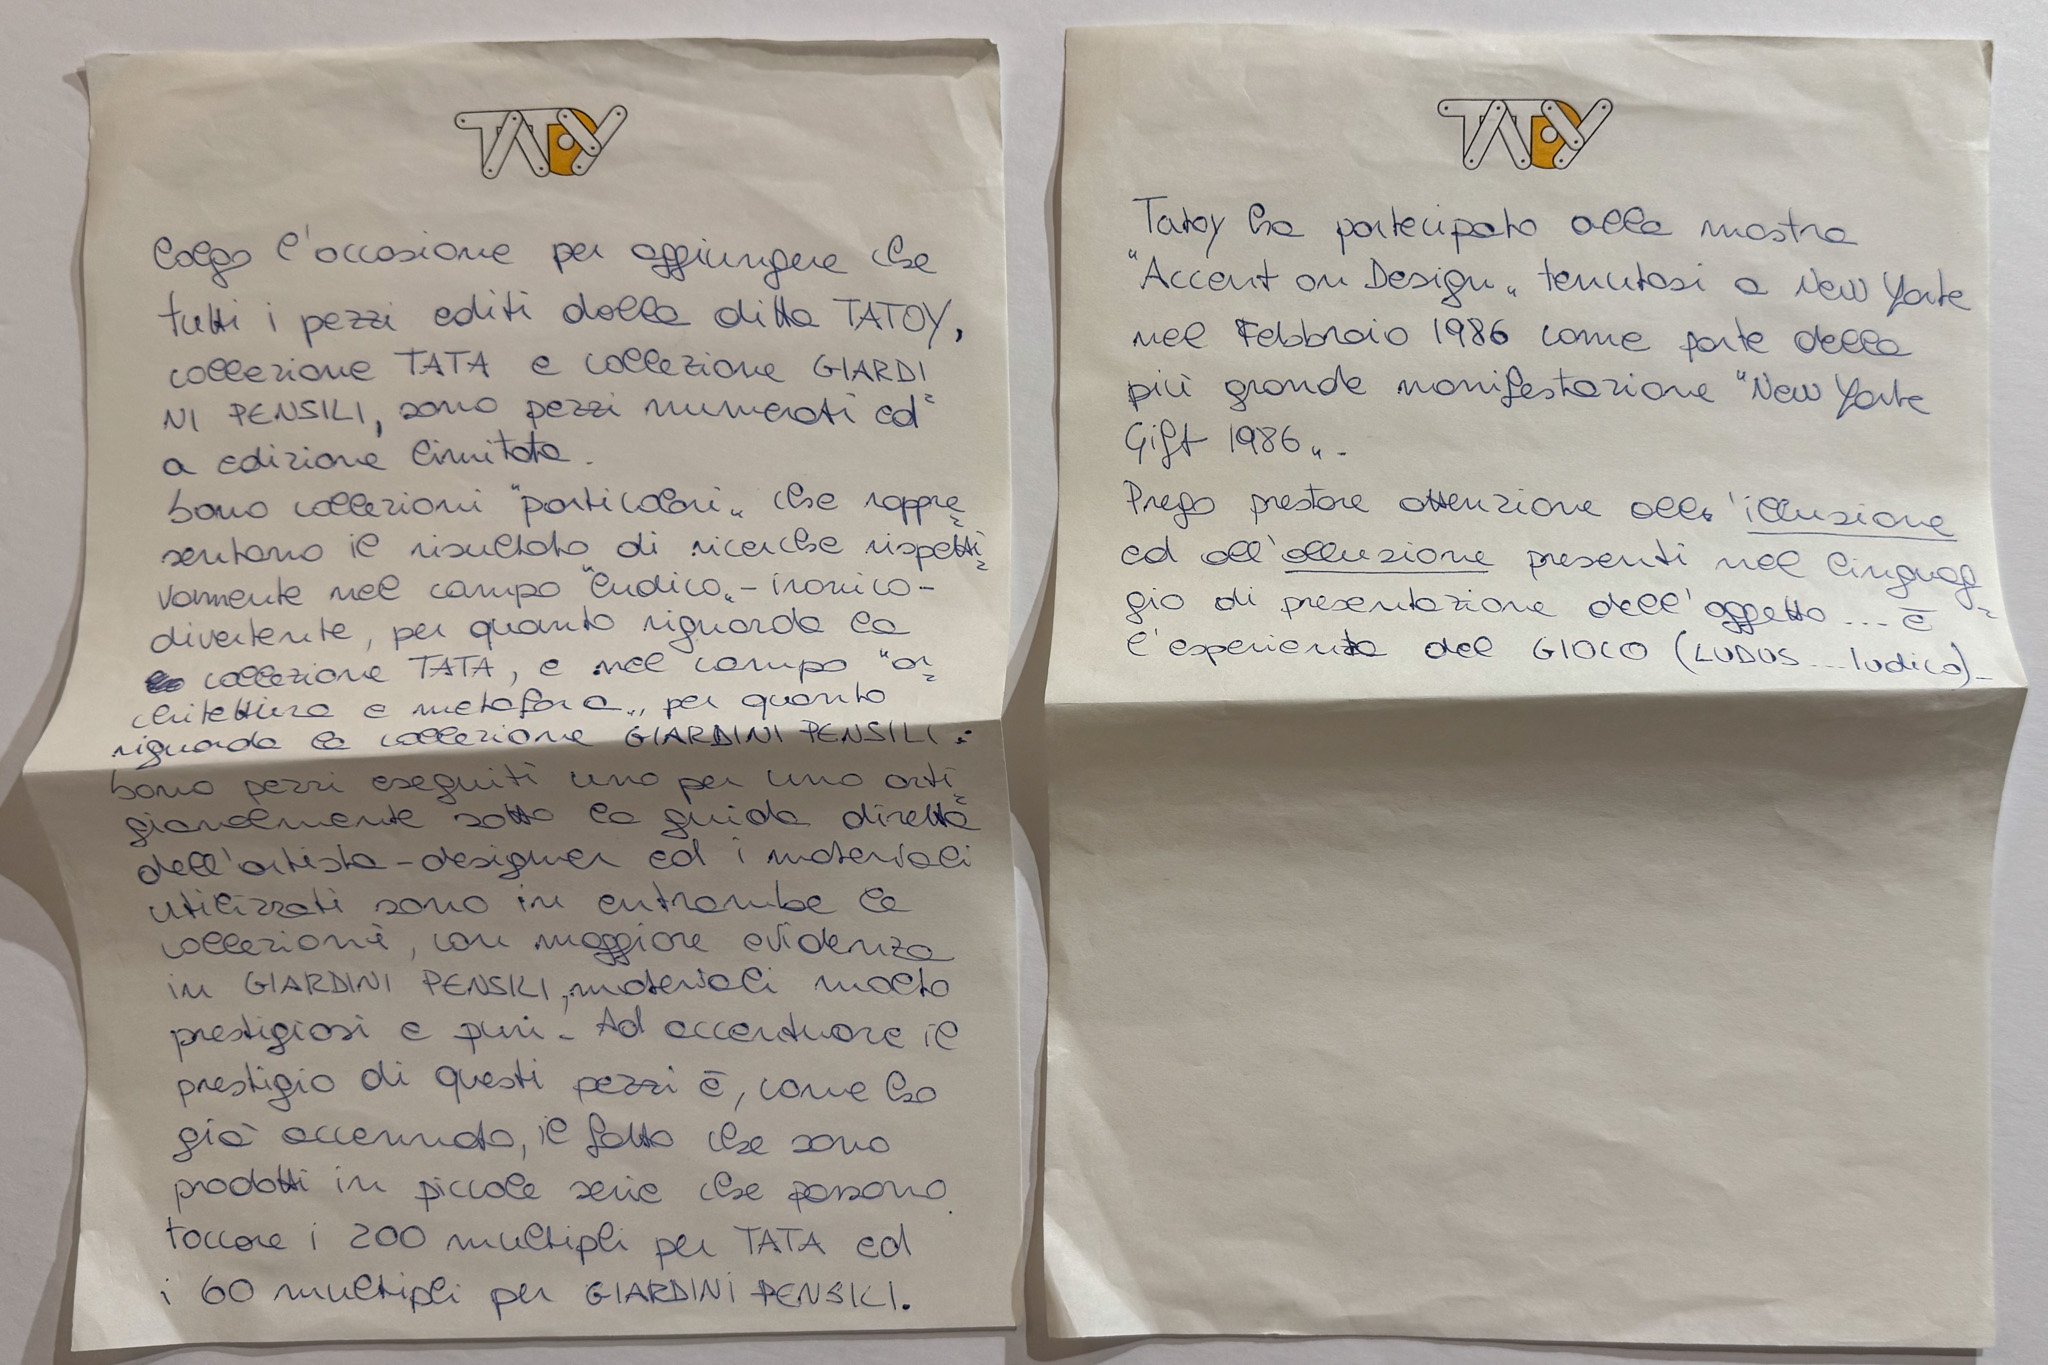 TATOY
Colgo l'occasione per aggiungere che
tutti i pezzi editi dalla ditta TATOY,
collezione TATA e collezione GIARDI
NI PENSILI, sono pezzi numerati ed
a edizione limitata.
Sono collezioni "particolari" che rappre
sentano il risultato di ricerche rispetti
vamente nel campo "ludico"-ironico-
divertente, per quanto riguarda la
collezione TATA, e nel campo "ar
chitettura e metafora", per quanto
riguarda la collezione GIARDINI PENSILI.
Sono pezzi eseguiti uno per uno arti
gianalmente sotto la guida diretta
dell'artista-designer ed i materiali
utilizzati sono in entrambe le
collezioni, con maggiore evidenza
in GIARDINI PENSILI, materiali molto
prestigiosi e puri - Ad accentuare il
prestigio di questi pezzi è, come ho
già accennato, il fatto che sono
prodotti in piccole serie che possono
toccare i 200 multipli per TATA ed
i 60 multipli per GIARDINI PENSILI.
TATOY
Tatoy ha partecipato alla mostra
"Accent on Design" tenutasi a New York
nel Febbraio 1986 come parte della
più grande manifestazione "New York
Gift 1986".
Prego prestare attenzione all'illusione
ed all'allusione presenti nel linguag
gio di presentazione dell'oggetto... è
l'esperienza del GIOCO (LUDUS...ludico)-